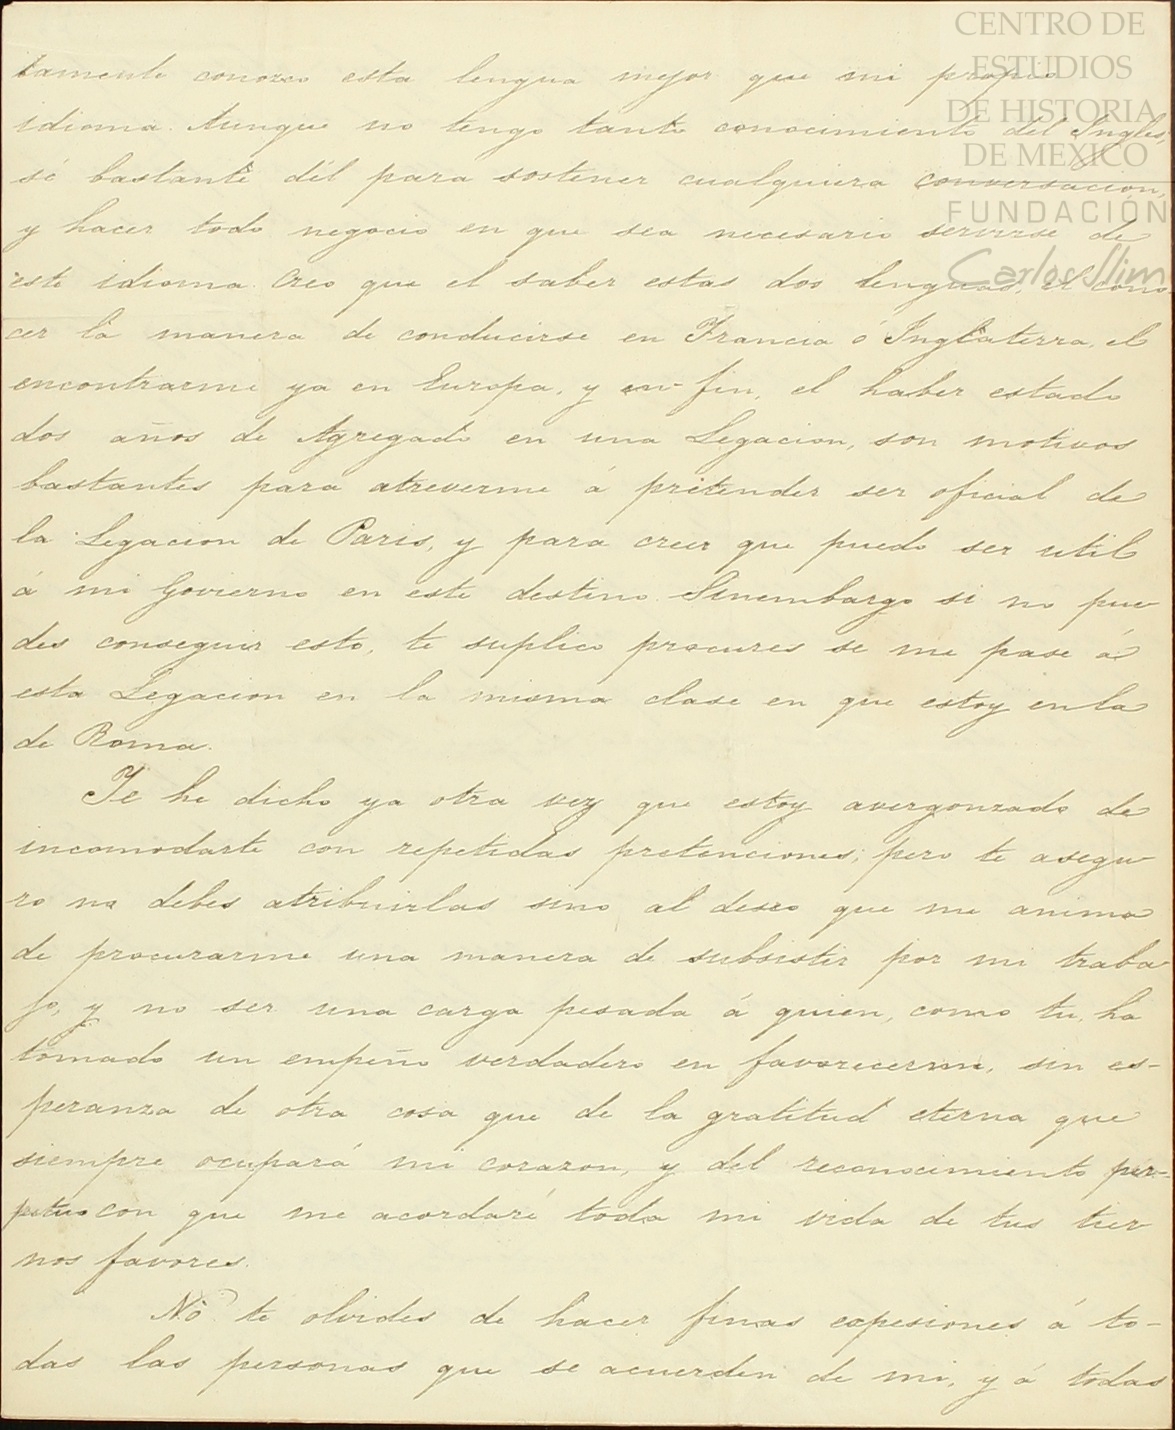 CENTRO DE
ESTUDIOS
DE HISTORIA
DE MEXICO
FUNDACIÓN
Carlos Slim
tamente conozco esta lengua mejor que mi propio
idioma. Aunque no tengo tanto conocimiento del Ingles,
sé bastante dél para sostener cualquiera conversacion,
y hacer todo negocio en que sea necesario servirse de
este idioma. Creo que el saber estas dos lenguas, el cono
cer la manera de conducirse en Francia ó Inglaterra, el
encontrarme ya en Europa, y en fin, el haber estado
dos años de Agregado en una Legacion, son motivos
bastantes para atreverme á pretender ser oficial de
la Legacion de Paris, y para creer que puedo ser util
á mi Govierno en este destino. Sinembargo si no pue
des conseguir esto, te suplico procures se me pase á
esta Legacion en la misma clase en que estoy en la
de Roma.
Te he dicho ya otra vez que estoy avergonzado de
incomodarte con repetidas pretenciones; pero te asegu
ro no debes atribuirlas sino al deseo que me anima
de procurarme una manera de subsistir por mi traba
jo, y no ser una carga pesada á quien, como tu, ha
tomado un empeño verdadero en favorecerme, sin es-
peranza de otra cosa que de la gratitud eterna que
siempre ocupará mi corazon, y del reconocimiento per-
petuo con que me acordaré toda mi vida de tus tier
nos favores.
No te olvides de hacer finas expesiones á to-
das las personas que se acuerden de mi, y á todas